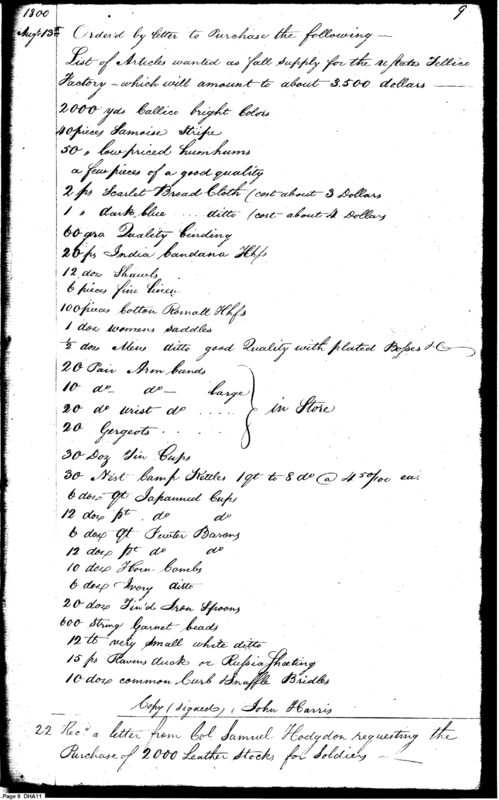 1800
9
Augt. 13th Order'd by letter to Purchase the following —
List of Articles wanted as fall supply for the U States Tellico
Factory – which will amount to about 3.500 dollars —
2000 yds Callico bright Colors
40 pieces Samoise Stripe
50 " low priced humhums
a few pieces of a good quality
2 ps Scarlet Broad Cloth (cost about 3 Dollars
1 " dark blue ... ditto (cost about 4 Dollars
60 gro Quality binding
20 ps India bandana Hkfs
12 dox Shawls
6 pieces fine linen
100 pieces Cotton Romall Hkfs
1 dox womens saddles
½ dox Mens ditto good Quality with plated Bosses &C
20 Pair Arm bands
10 do — do — large
20 do wrist do .....
20 Gorgeots .....
in Store
30 Doz Tin Cups
30 Nest Camp Kettles 1 qt to 8 do @ 4 50/100 ea.
6 dox qt Japanned Cups
12 dox pt . do do
6 dox qt Pewter Basons
12 dox pt do do
10 dox Horn Combs
6 dox Ivory ditto
20 dox Tin'd Iron Spoons
600 String Garnet beads
12 lb very small white ditto
15 ps Ravens duck or Russia Sheeting
10 dox common Curb & Snaffle Bridles
Copy (signed), John Harris
22 Recd a letter from Col Samuel Hodgdon requesting the
Purchase of 2000 Leather Stocks for Soldiers —
Page 9 DHA11